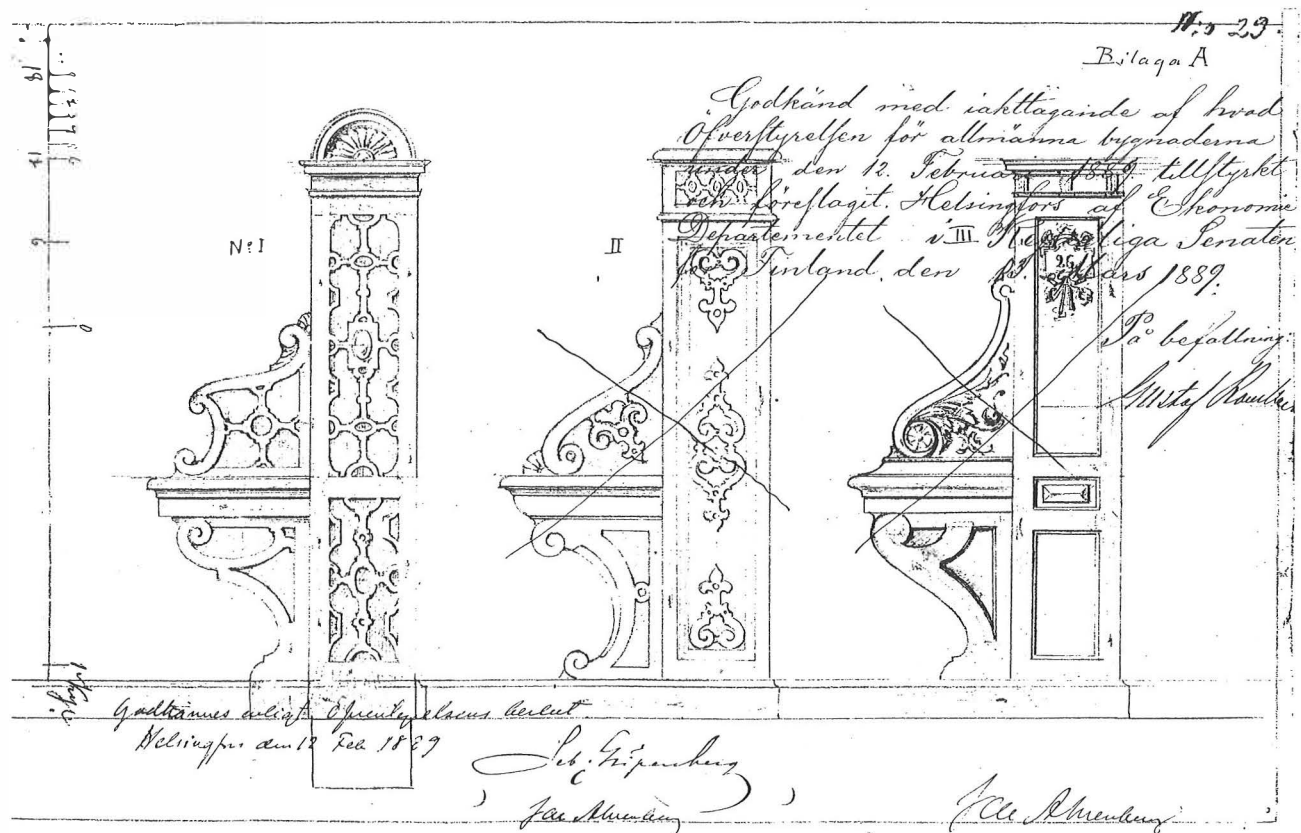 No 23.
Bilaga A
Godkänd med iakttagande af hvad
Öfverstyrelsen för allmänna bygnaderna
under den 12. Februari 1889 tillstyrkt
och föreslagit. Helsingfors af Ekonomie
Departementet i Kejserliga Senaten
för Finland, den Mars 1889.
På befallning:
Gustaf
No I
II
III
26
18
9
0
Godkännes enligt Öfverstyrelsens beslut.
Helsingfors den 12 Feb 1889
Seb. Gripenberg
Jac Ahrenberg
Jac Ahrenberg